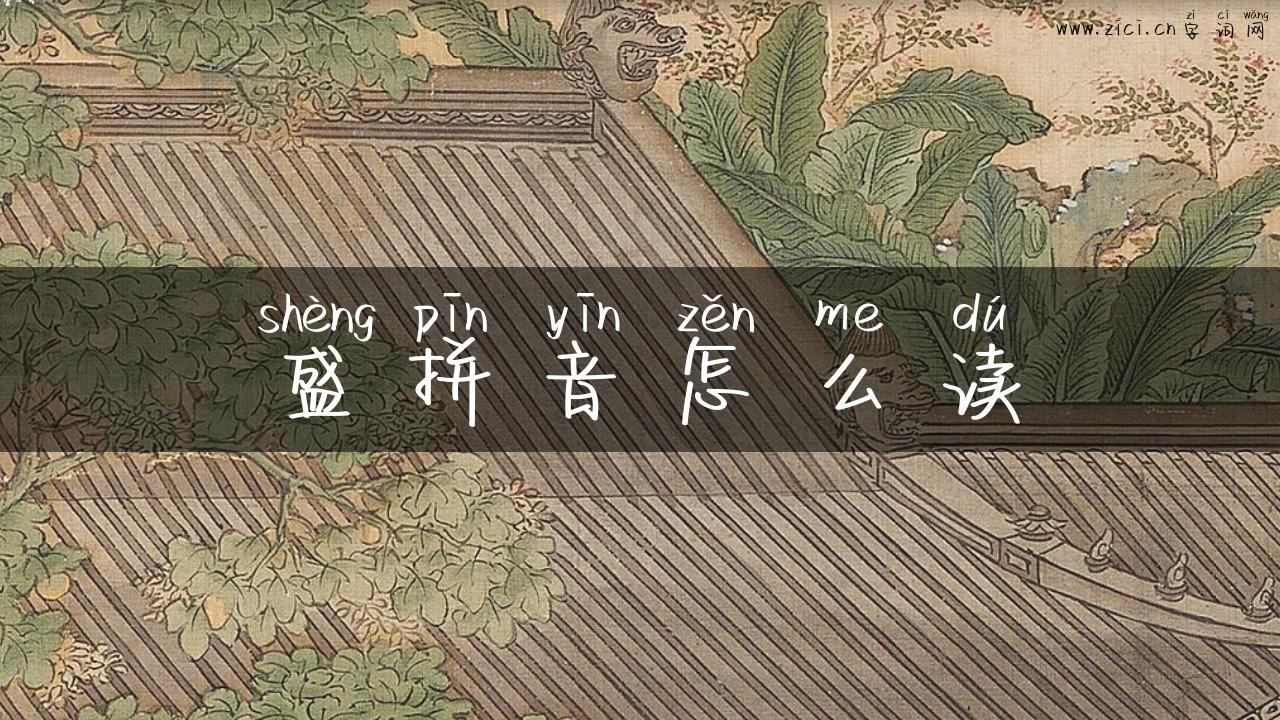 zì cí wǎng
www.zici.cn 字词网
shèng pīn yīn zěn me dú
盛拼音怎么读